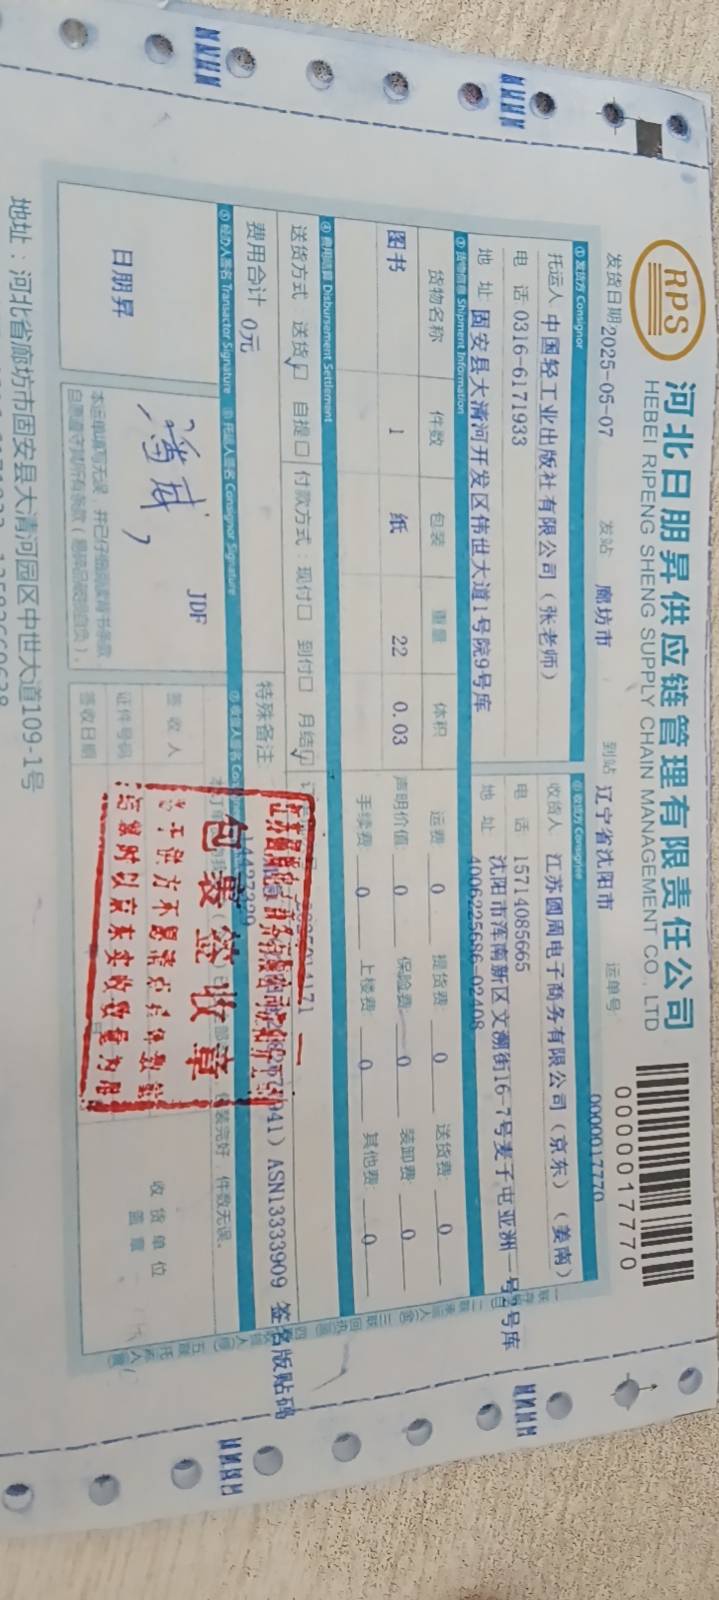 RPS
河北日朋昇供应链管理有限责任公司
HEBEI RIPENG SHENG SUPPLY CHAIN MANAGEMENT CO., LTD
0000017770
发货日期 2025-05-07 发站 廊坊市 到站 辽宁省沈阳市 运单号: 0000017770
① 发货方 Consignor
托运人 中国轻工业出版社有限公司（张老师）
电 话 0316-6171933
地 址 固安县大清河开发区伟世大道1号院9号库
② 收货方 Consignee
收货人 江苏圆周电子商务有限公司（京东）（姜南）
电 话 15714085665
地 址 沈阳市浑南新区文溯街16-7号麦子屯亚洲一号 号库
4006225686-02408
③ 货物信息 Shipment Information
货物名称 件数 包装 重量 体积
图书 1 纸 22 0.03
运费 0 提货费: 0 送货费: 0
声明价值 0 保险费: 0 装卸费: 0
手续费: 0 上楼费: 0 其他费: 0
④ 费用结算 Disbursement Settlement
送货方式 送货☑ 自提口 付款方式: 现付口 到付口 月结☑
费用合计 0元
特殊备注
ASN13333909 签名版贴码
⑤ 经办人签名 Transactor Signature ⑥ 托运人签名 Consignor Signature
日朋昇
JDF
本运单填写无误，并已仔细阅读背书条款，
签收人
证件号码
签收日期
装完好，件数无误。
收货单位
盖章
包裹签收章
地址：河北省廊坊市固安县大清河园区中世大道109-1号